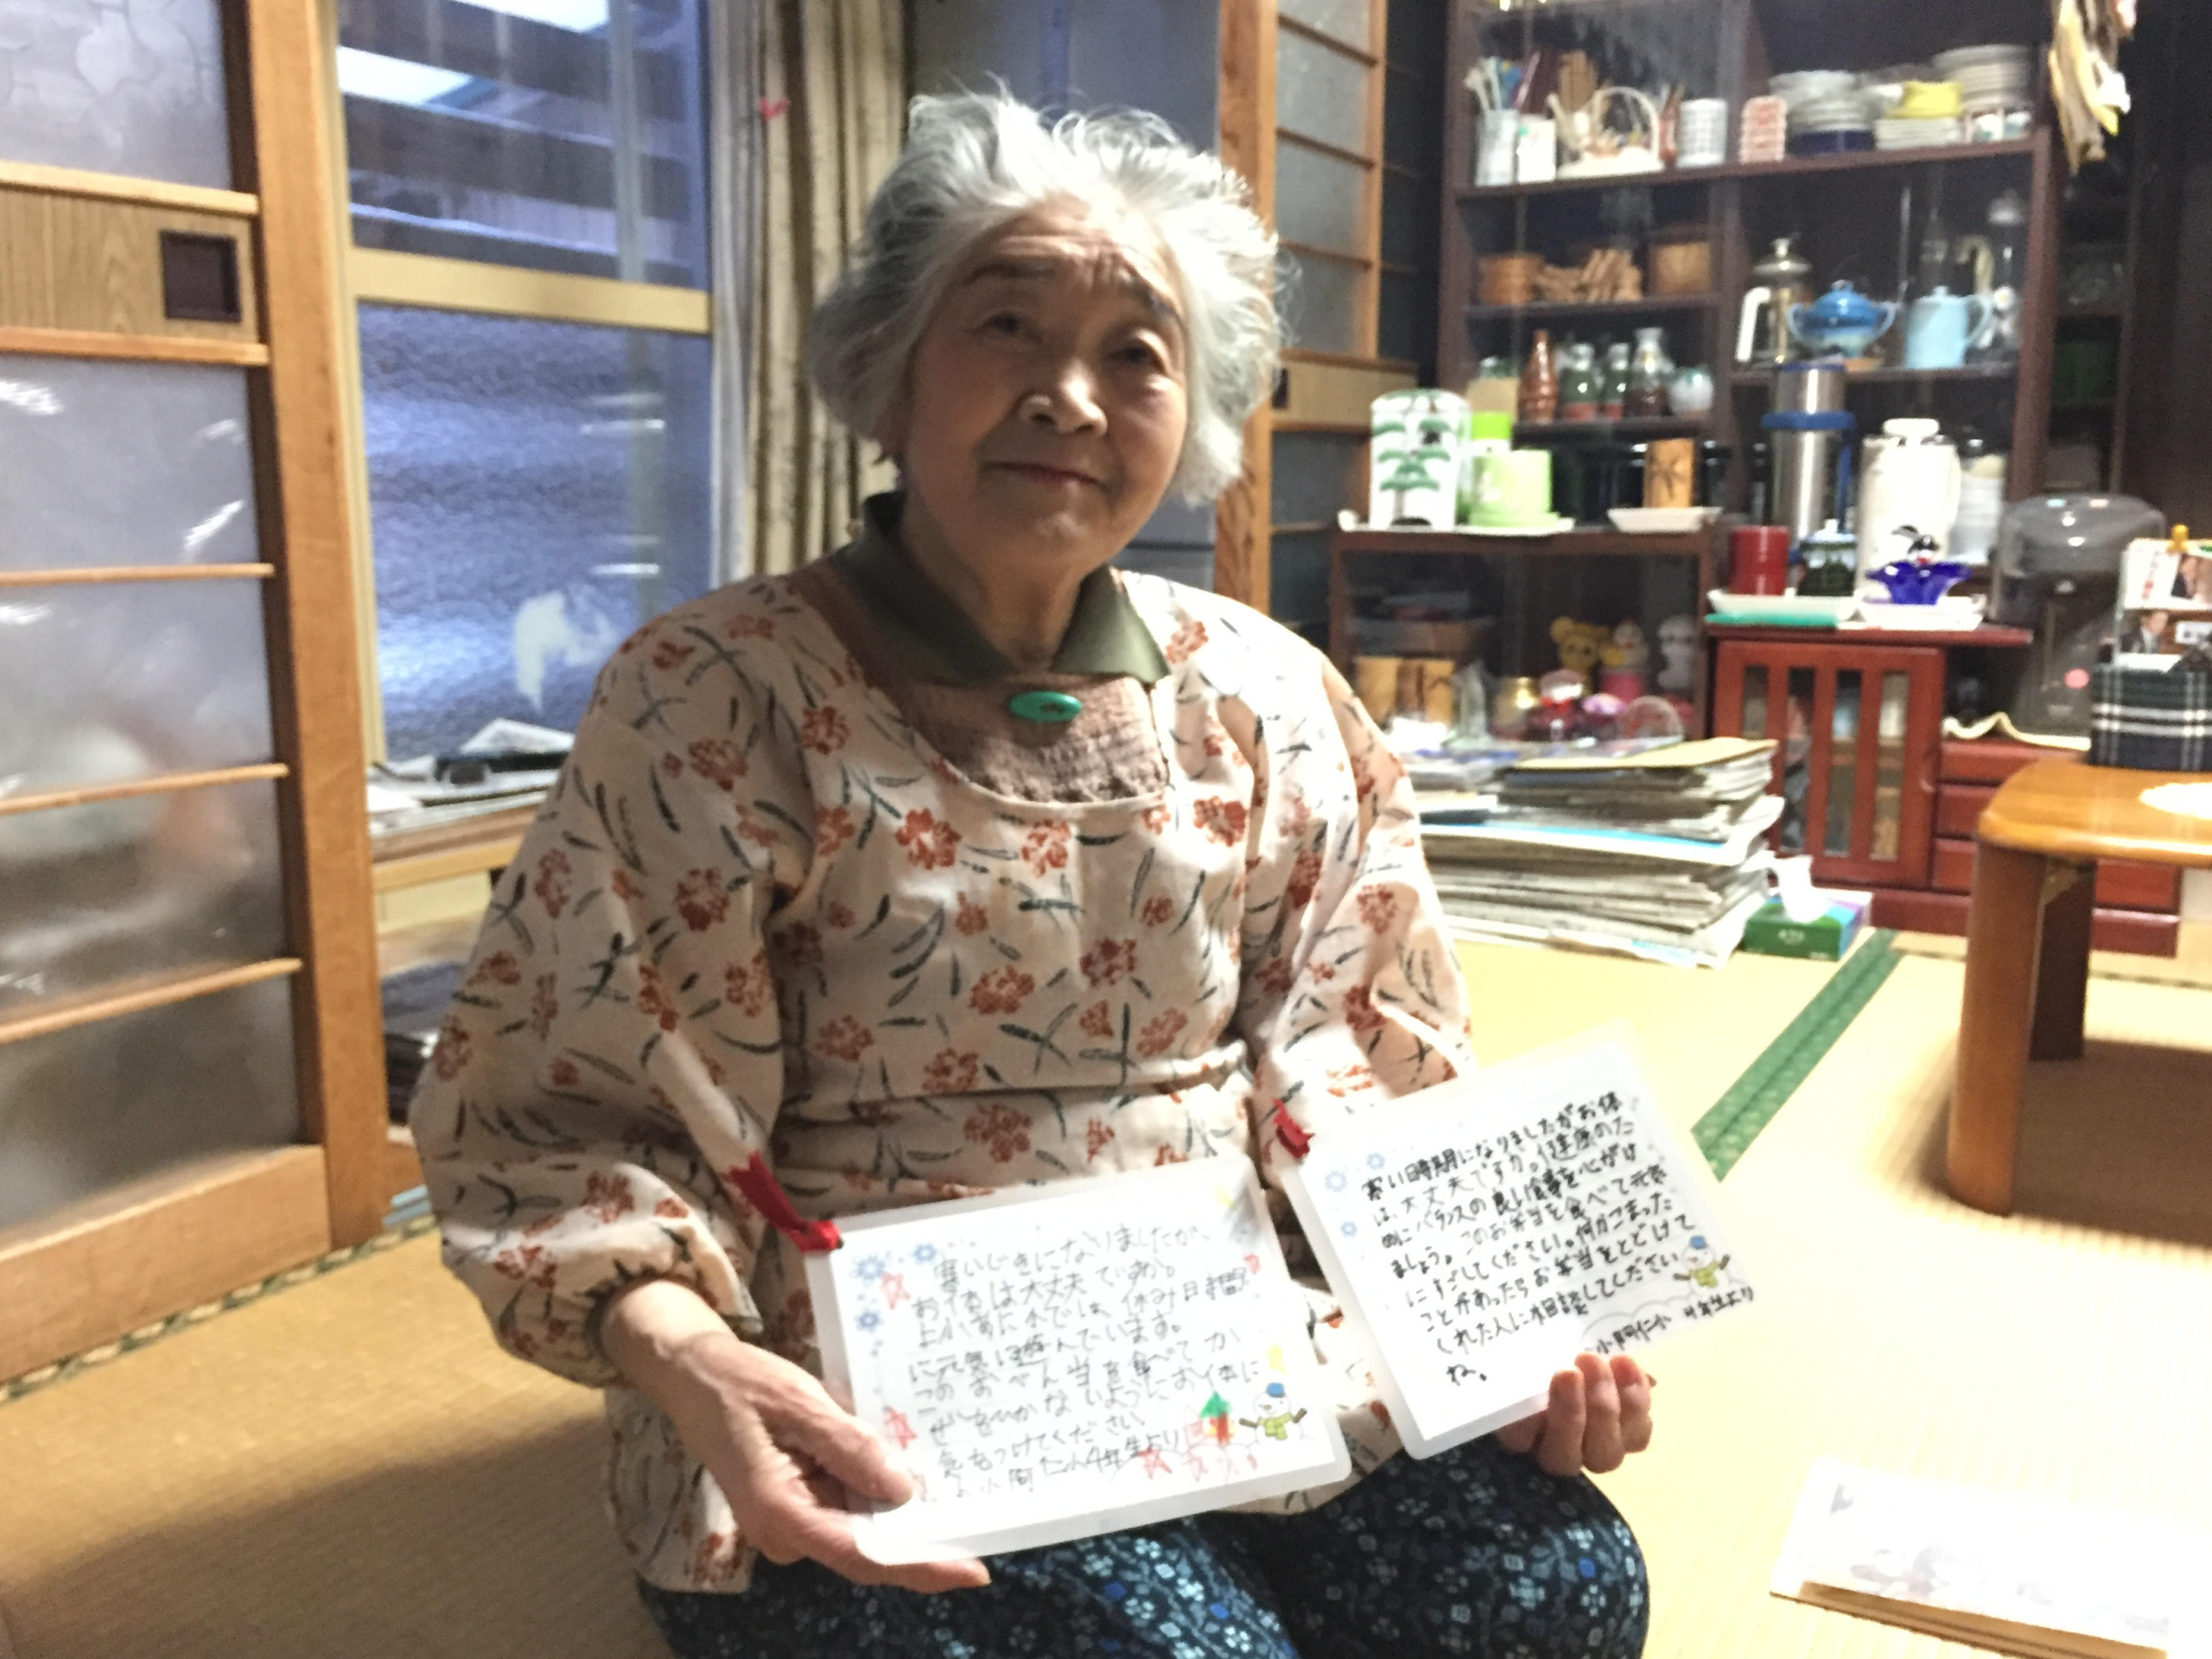 寒いじきになりましたが、
お体は大丈夫ですか。
上小あに小では、休み時間
に元気に遊んでいます。
このおべん当を食べてか
ぜをひかないようにお体に
気をつけてください。
上小阿仁小4年生より
寒い時期になりましたがお体
は、大丈夫ですか。健康のた
めにバランスの良い食事を心がけ
ましょう。このお弁当を食べて元気
にすごしてください。何かこまった
ことがあったらお弁当をとどけて
くれた人に相談してください
ね。
小阿仁小 4年生より